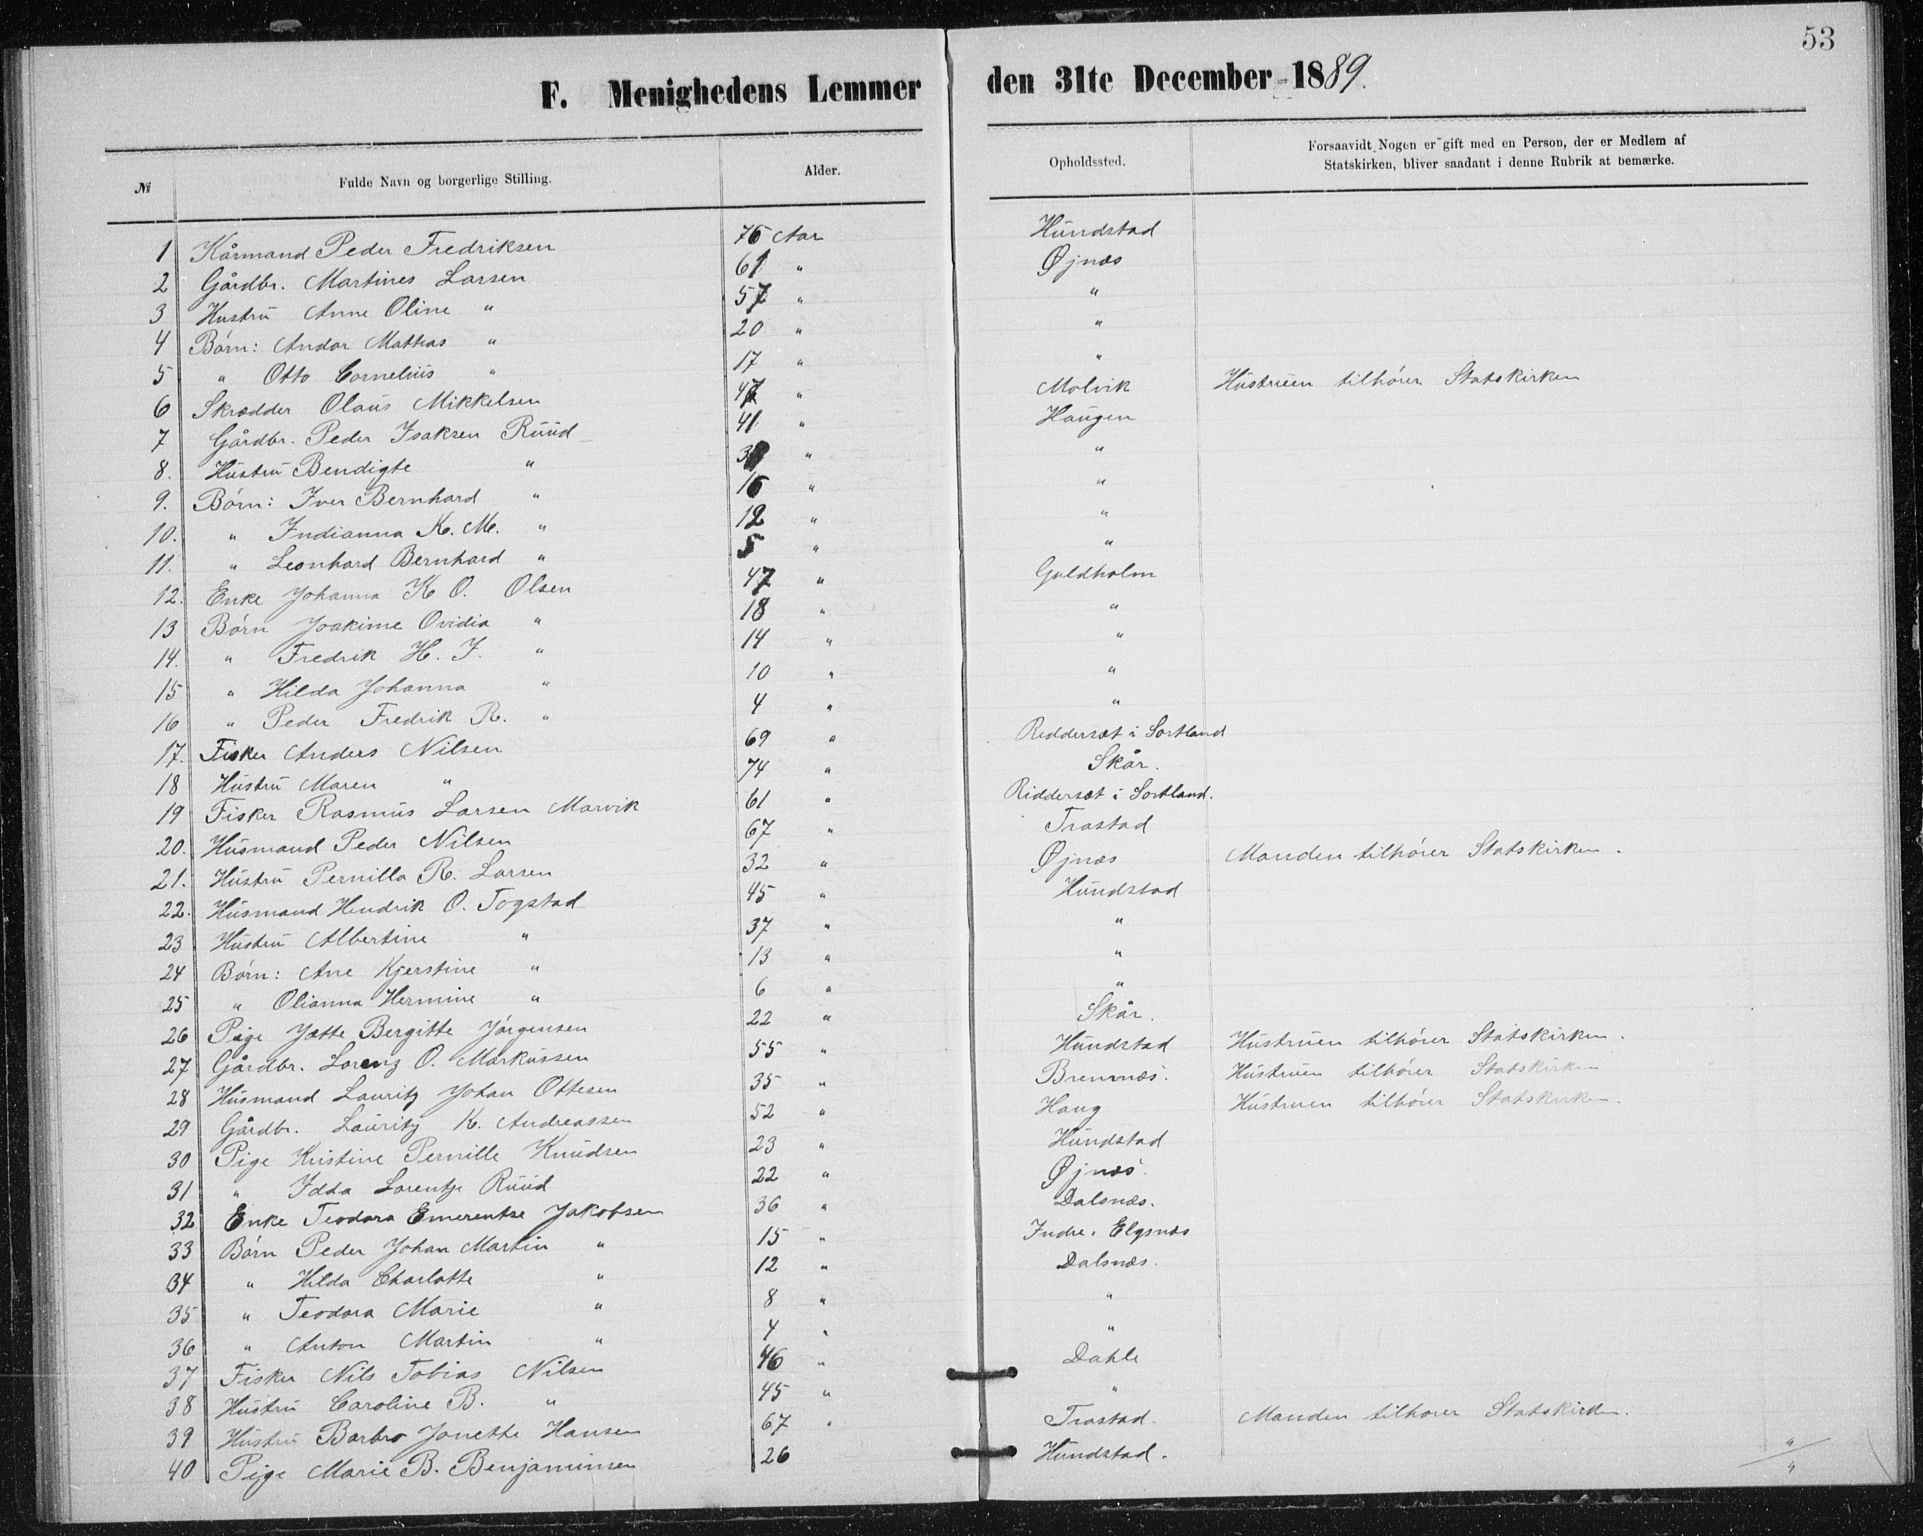 53
F. Menighedens Lemmer den 31te December 1889.
№ Fulde Navn og borgerlige Stilling. Alder. Opholdssted. Forsaavidt Nogen er gift med en Person, der er Medlem af
Statskirken, bliver saadant i denne Rubrik at bemærke.
1 Kårmand Peder Fredriksen 76 Aar Hundstad
2 Gårdbr. Martines Larsen 61 " Øjnæs
3 Hustru Anne Oline " 57 " "
4 Børn: Andor Mathias " 20 " "
5 " Otto Cornelius " 17 " "
6 Skrædder Olaus Mikkelsen 47 " Molvik Hustruen tilhører Statskirken
7 Gårdbr. Peder Isaksen Ruud 41 " Haugen
8. Hustru Bendigte " " "
9. Børn: Iver Bernhard " 16 " "
10. " Indianna K. M. " 12 " "
11. " Leonhard Bernhard " 5 " "
12. Enke Johanna K O. Olsen 47 " Guldholm
13 Børn Joakime Ovidia " 18 " "
14. " Fredrik H. J. " 14 " "
15 " Hilda Johanna " 10 " "
16 " Peder Fredrik R. " 4 " "
17. Fisker Anders Nilsen 69 " Riddersæt i Sortland
18 Hustru Maren " 74 " Skår.
19 Fisker Rasmus Larsen Marvik 61 " Riddersæt i Sortland.
20. Husmand Peder Nilsen 67 " Trastad
21. Hustru Pernilla R. Larsen 32 " Øjnæs Manden tilhører Statskirken.
22. Husmand Hendrik O. Togstad 45 " Hundstad
23 Hustru Albertine " 37 " "
24 Børn: Ane Kjerstine " 13 " "
25 " Olianna Hermine " 6 " "
26 Pige Jætte Bergitte Jørgensen 22 " Skår.
27 Gårdbr. Lorenz O. Markussen 55 " Hundstad Hustruen tilhører Statskirken.
28 Husmand Lauritz Johan Ottesen 35 " Bremnæs. Hustruen tilhører Statskirken
29 Gårdbr. Lauritz K. Andreassen 52 " Haug Hustruen tilhører Statskirken.
30 Pige Kristine Pernille Knudsen 23 " Hundstad
31 " Idda Lorentze Ruud 22 " Øjnæs.
32 Enke Teodora Emerentse Jakobsen 36 " Dalsnæs.
33 Børn Peder Johan Martin " 15 " Indre. Elgsnæs
34 " Hilda Charlotte " 12 " Dalsnæs.
35 " Teodora Marie " 8 " "
36 " Anton Martin " 4 " "
37 Fisker Nils Tobias Nilsen 46 " Dahle
38 Hustru Caroline B. " 45 " "
39 Hustru Barbro Jonette Hansen 67 " Trastad. Manden tilhører Statskirken.
40 Pige Marie B. Benjaminsen 26 Hundstad.